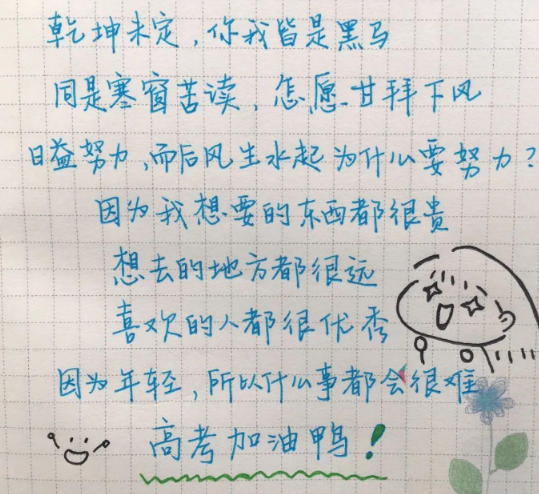 乾坤未定，你我皆是黑马
同是寒窗苦读，怎愿甘拜下风
日益努力，而后风生水起为什么要努力？
因为我想要的东西都很贵
想去的地方都很远
喜欢的人都很优秀
因为年轻，所以什么事都会很难
高考加油鸭！